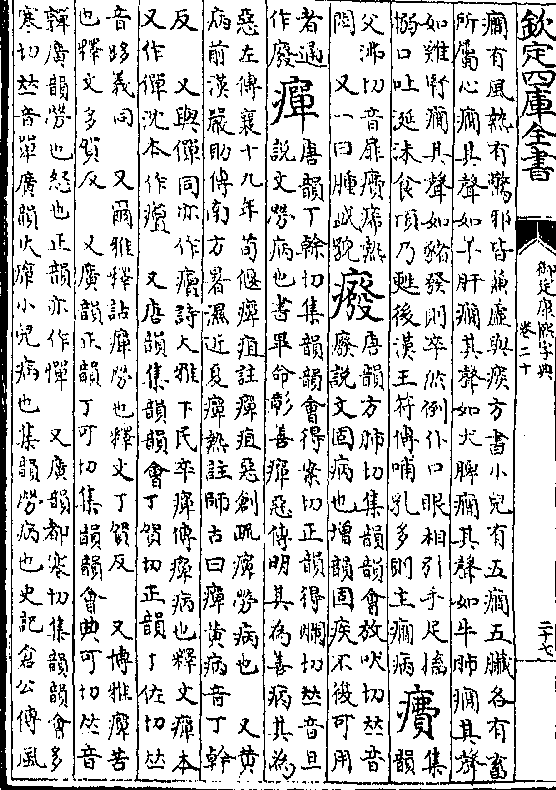 欽定四庫全書
御定康熙字典
卷二十
二十七
癇有風熱有驚邪皆兼虛與痰方書小兒有五癇五臟各有畜
所屬心癇其聲如羊肝癇其聲如犬脾癇其聲如牛肺癇其聲
如雞腎癇其聲如豬發則卒然倒仆口眼相引手足搐
搦口吐涎沫食頃乃甦後漢王符傳哺乳多則主癇病
癀
集
韻
父沸切音扉癀疿熱
悶 又一曰腫
癈
唐韻方肺切集韻韻會放吠切
癈說文固病也增韻固疾不復可用
者通
作廢
癉
唐韻丁幹切集韻韻會得案切正韻得爛切𠀤音旦
說文勞病也書畢命彰善癉惡傳明其為善病其為
惡左傳襄十九年荀偃癉疽註癉疽惡創疏癉勞病也 又黃
病前漢嚴助傳南方暑濕近夏癉熱註師古曰癉黃病音丁幹
反 又與僤同亦作癉詩大雅下民卒癉傳癉病也釋文癉本
又作僤沈本作㽎 又唐韻集韻韻會丁賀切正韻丁佐切𠀤
音跢義同 又爾雅釋詁癉勞也釋文丁賀反 又博雅癉苦
也釋文多賀反 又廣韻正韻丁可切集韻韻會典可切𠀤音
嚲廣韻勞也怒也正韻亦作憚 又廣韻都寒切集韻韻會多
寒切𠀤音單廣韻火癉小兒病也集韻勞病也史記倉公傳風